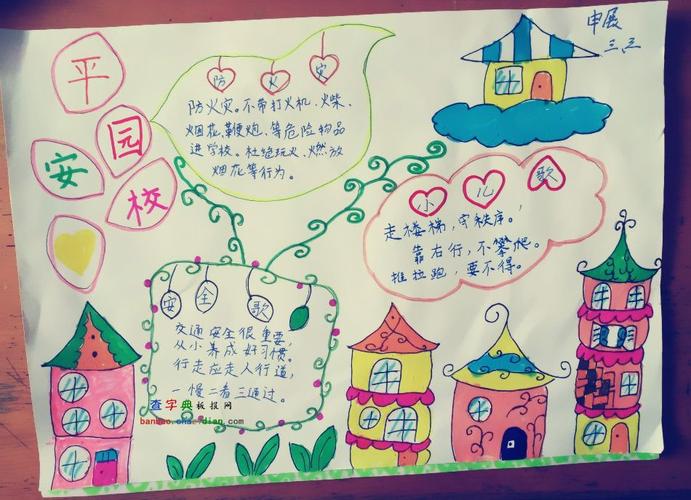 平安校园
防火灾
防火灾。不带打火机、火柴、
烟花、鞭炮、等危险物品
进学校。杜绝玩火、燃放
烟花等行为。
申展
小儿歌
走楼梯，守秩序。
靠右行，不攀爬。
推拉跑，要不得。
安全歌
交通安全很重要，
从小养成好习惯。
行走应走人行道，
一慢二看三通过。
查字典板报网
banbao.chazidian.com